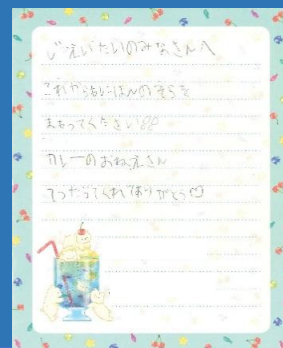 じえいたいのみなさんへ
これからもにほんのそらを
まもってください
カレーのおねえさん
てつだってくれてありがとう♡